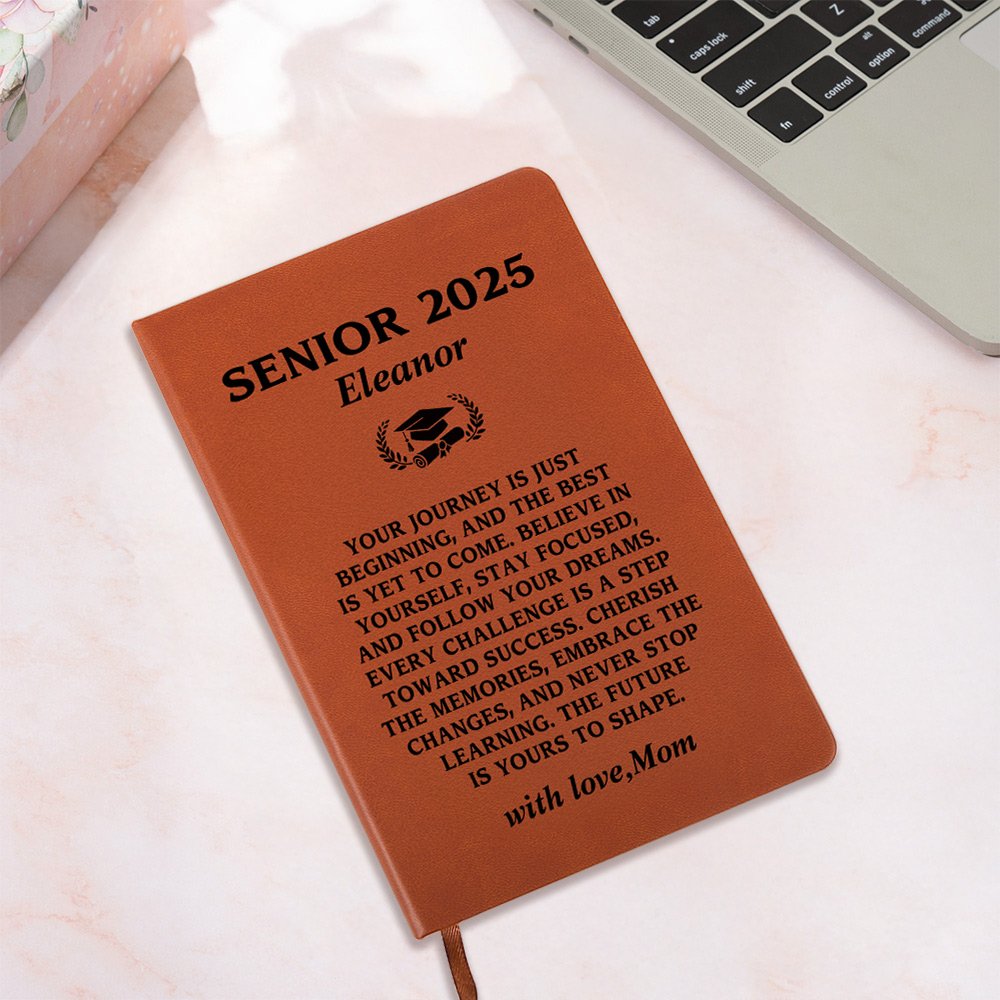 tab
caps lock
Z
alt
option
command
shift
control
fn
SENIOR 2025
Eleanor
YOUR JOURNEY IS JUST
BEGINNING, AND THE BEST
IS YET TO COME. BELIEVE IN
YOURSELF, STAY FOCUSED,
AND FOLLOW YOUR DREAMS.
EVERY CHALLENGE IS A STEP
TOWARD SUCCESS. CHERISH
THE MEMORIES, EMBRACE THE
CHANGES, AND NEVER STOP
LEARNING. THE FUTURE
IS YOURS TO SHAPE.
with love,Mom